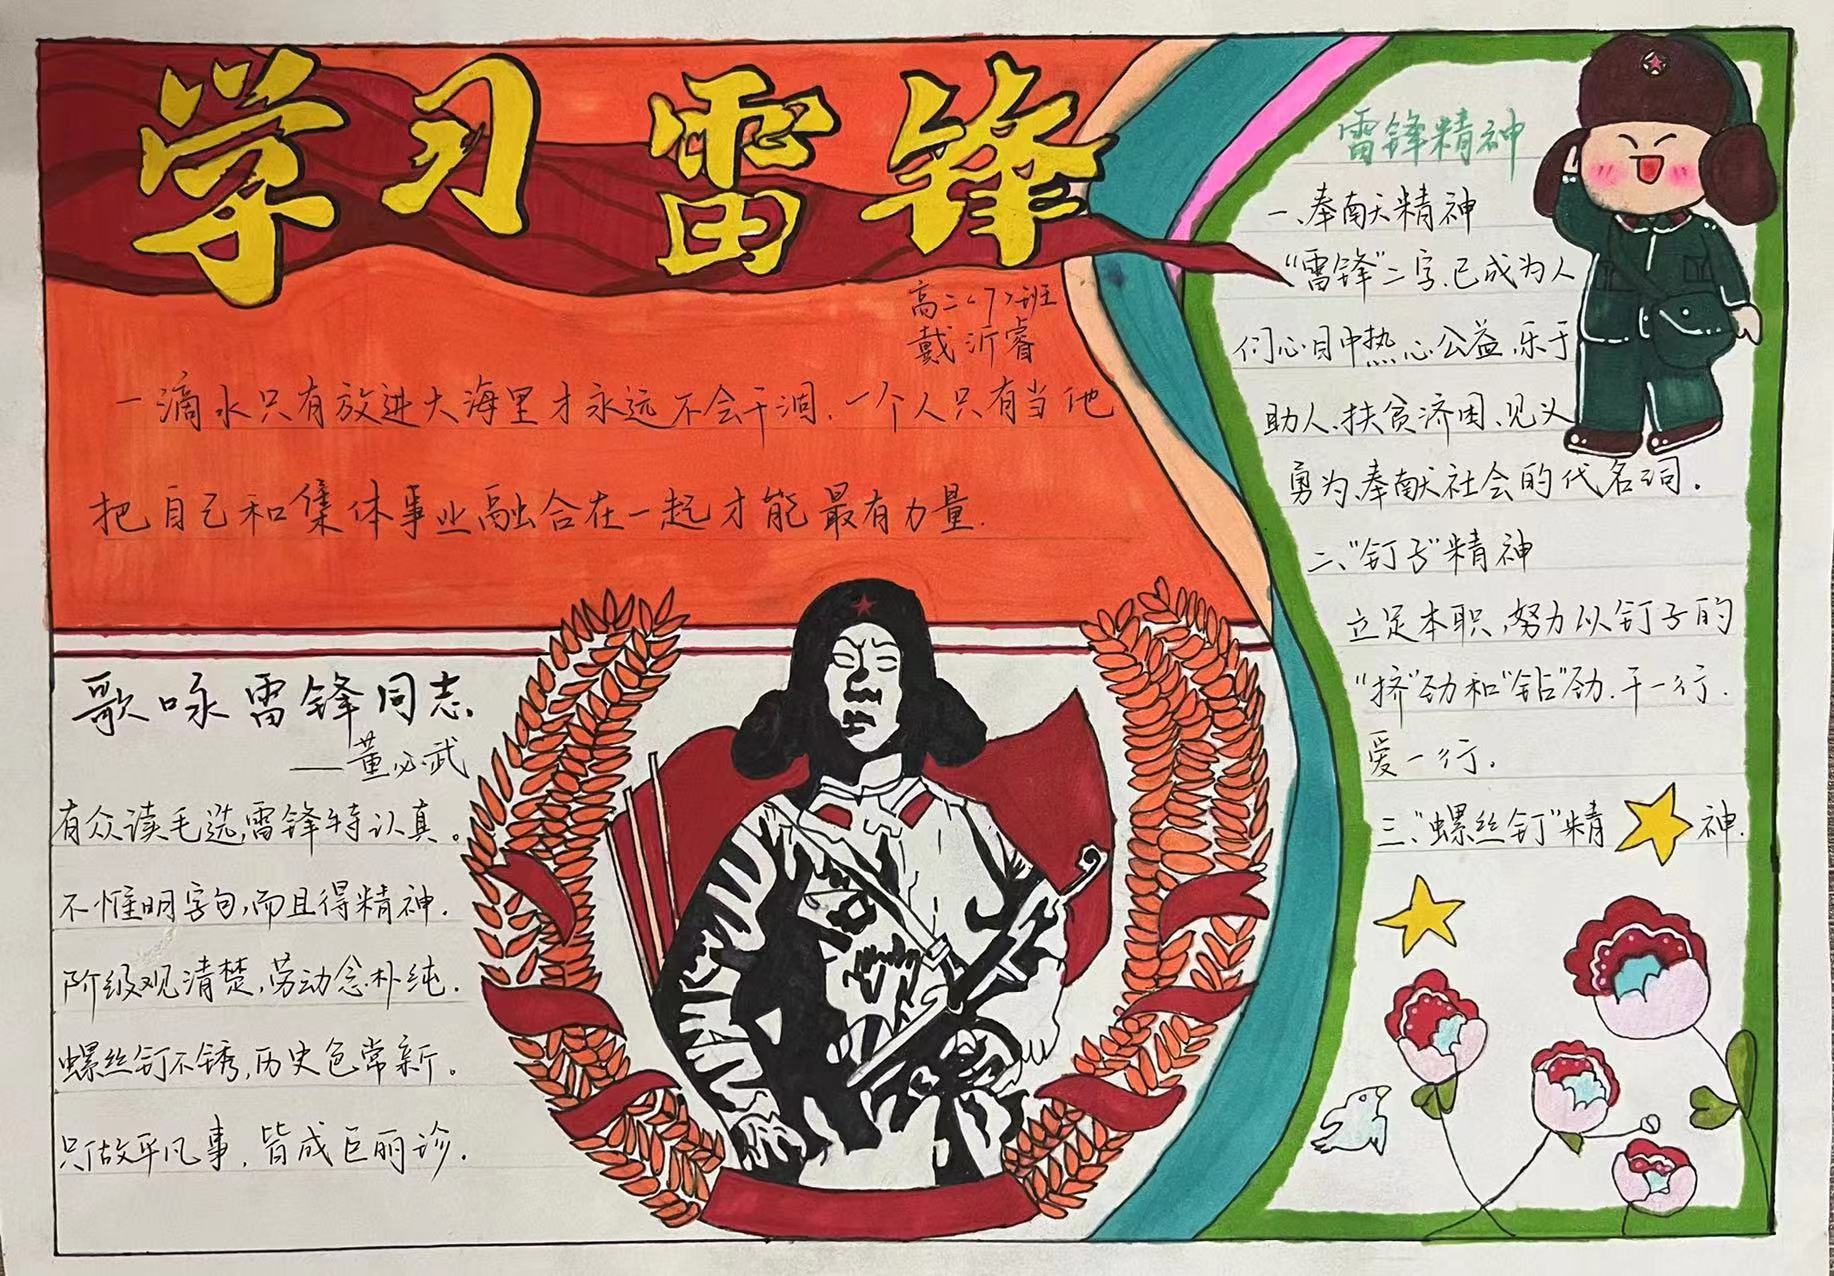 学习雷锋
高二<7>班
戴沂睿
一滴水只有放进大海里才永远不会干涸.一个人只有当他
把自己和集体事业融合在一起才能最有力量.
歌咏雷锋同志
——董必武
有众读毛选,雷锋特认真。
不惟明字句,而且得精神.
阶级观清楚,劳动念朴纯.
螺丝钉不锈,历史色常新。
只做平凡事,皆成巨丽诊.
雷锋精神
一、奉献精神
“雷锋”二字,已成为人
们心目中热心公益、乐于
助人、扶贫济困、见义
勇为、奉献社会的代名词.
二、“钉子”精神
立足本职,努力以钉子的
“挤”劲和“钻”劲.干一行.
爱一行.
三、“螺丝钉”精神.